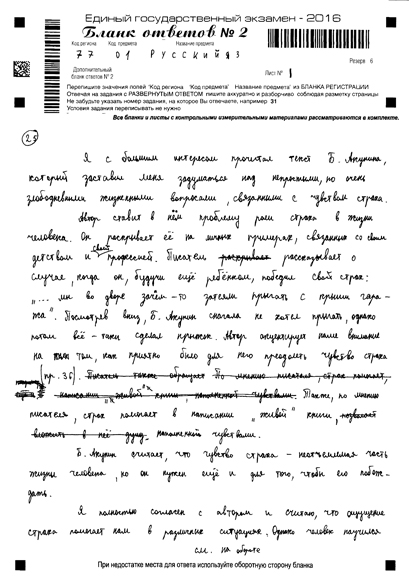 Единый государственный экзамен - 2016
Бланк ответов № 2
Код региона Код предмета Название предмета
77 01 РУССКИЙ ЯЗ
Резерв 6
Дополнительный
бланк ответов № 2
Лист № 1
Перепишите значения полей "Код региона "Код предмета" Название предмета" из БЛАНКА РЕГИСТРАЦИИ
Отвечая на задания с РАЗВЕРНУТЫМ ОТВЕТОМ пишите аккуратно и разборчиво соблюдая разметку страницы
Не забудьте указать номер задания, на которое Вы отвечаете, например 31
Условия задания переписывать не нужно
Все бланки и листы с контрольными измерительными материалами рассматриваются в комплекте.
25
Я с большим интересом прочитал текст Б. Акунина,
который заставил меня задуматься над непростыми, но очень
злободневными жизненными вопросами, связанными с чувством страха.
Автор ставит в нём проблему роли страха в жизни
человека. Он раскрывает её на личных примерах, связанных со своим
детством и своей профессией. Писатель рассказывает о
случае, когда он, будучи ещё ребёнком, победил свой страх:
"... мы во дворе зачем-то затеяли прыгать с крыши гара-
жа". Посмотрев вниз, Б. Акунин сначала не хотел прыгать, однако
потом всё-таки сделал прыжок. Автор акцентирует наше внимание
на том, как приятно было для него преодолеть чувство страха
(пр. 36). Писатель также обращает По мнению писателя, страх помогает,
написании "живой" книги, наполненной чувствами. Также, по мнению
писателя, страх помогает в написании "живой" книги,
вложить в неё душу наполненной чувствами.
Б. Акунин считает, что чувство страха - неотъемлемая часть
жизни человека, но он нужен ещё и для того, чтобы его побеж-
дать.
Я полностью согласен с автором и считаю, что ощущение
страха помогает нам в различных ситуациях. Однако человек научился
см. на обороте
При недостатке места для ответа используйте оборотную сторону бланка